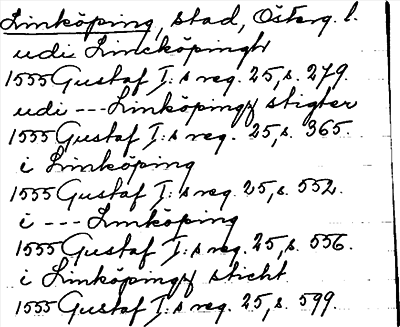 Linköping, stad, Österg. l.
udi Lincköpingh
1555 Gustaf I:s reg. 25, s. 279.
udi --- Linköpingx stigter
1555 Gustaf I:s reg. 25, s. 365.
i Linköping
1555 Gustaf I:s reg. 25, s. 552.
i --- Linköping
1555 Gustaf I:s reg. 25, s. 556.
i Linköpings sticht
1555 Gustaf I:s reg. 25, s. 599.